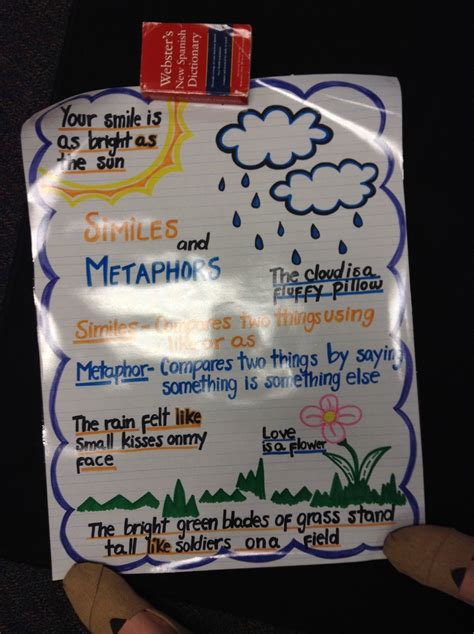 Webster's
New Spanish
Dictionary
Your smile is
as bright as
the sun
SIMILES
and
METAPHORS
The cloud is a
fluffy pillow
Similes - Compares two things using
like or as
Metaphor - Compares two things by saying
something is something else
The rain felt like
small kisses on my
face
Love
is a flower
The bright green blades of grass stand
tall like soldiers on a field